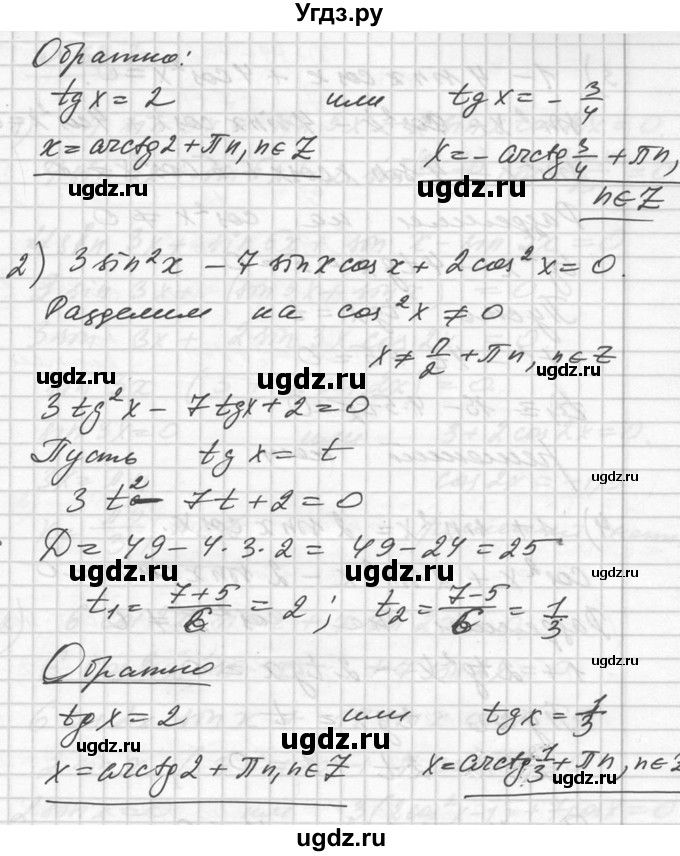 Угдз.ру
Обратно:
tg x = 2 или tg x = - 3/4
x = arctg 2 + πn, n∈Z x = - arctg 3/4 + πn,
ugdz.ru ugdz.ru n∈Z
ugdz.ru
2) 3 sin²x - 7 sin x cos x + 2 cos²x = 0.
Разделим на cos²x ≠ 0
x ≠ π/2 + πn, n∈Z
ugdz.ru ugdz.ru ugdz.ru
3 tg²x - 7 tg x + 2 = 0
Пусть tg x = t
ugdz.ru
3 t² - 7t + 2 = 0
Д = 49 - 4·3·2 = 49 - 24 = 25
ugdz.ru ugdz.ru
t₁ = (7+5)/6 = 2; t₂ = (7-5)/6 = 1/3
Обратно
ugdz.ru ugdz.ru
tg x = 2 или tg x = 1/3
ugdz.ru ugdz.ru
x = arctg 2 + πn, n∈Z x = arctg 1/3 + πn, n∈Z
ugdz.ru
ugdz.ru
ugdz.ru